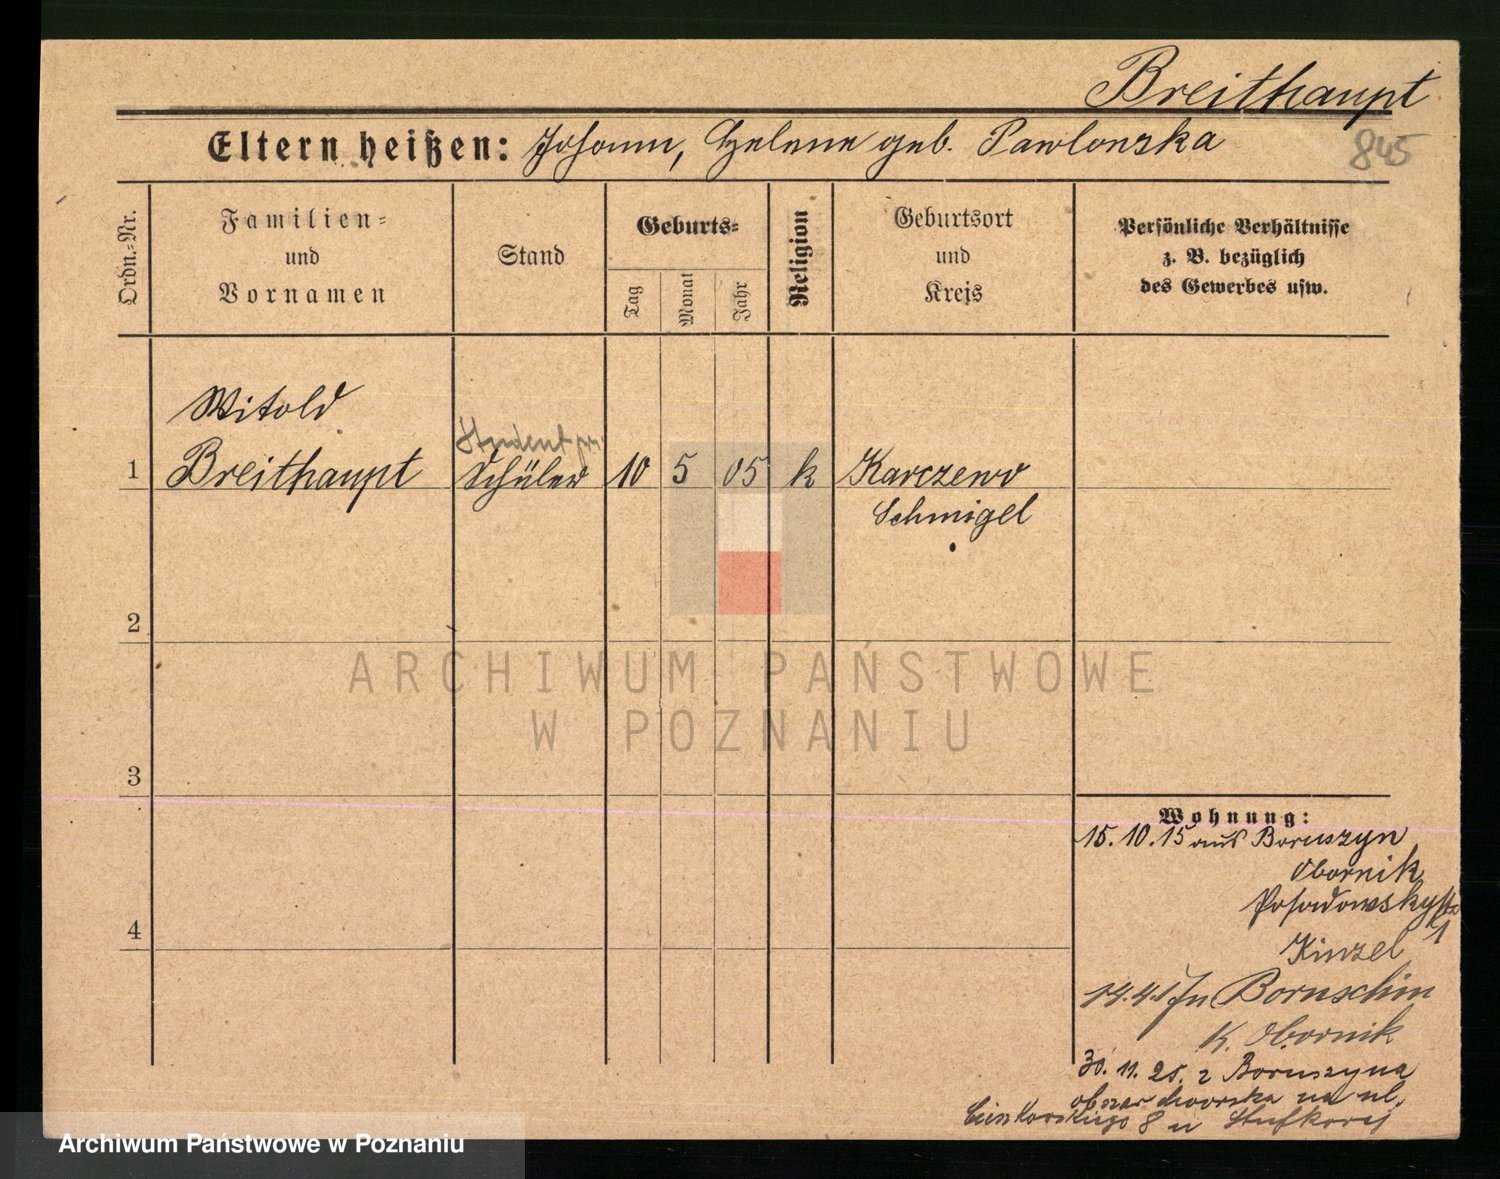 Breithaupt
845
Eltern heißen: Johann, Helene geb. Pawlonska
Ordn.=Nr.
Familien=
und
Vornamen
Stand
Geburts=
Tag
Monat
Jahr
Religion
Geburtsort
und
Kreis
Persönliche Verhältnisse
z. B. bezüglich
des Gewerbes usw.
Witold
Student
1 Breithaupt Schüler 10 5 05 k Karczewo
Schmigel
2
ARCHIWUM PAŃSTWOWE
W POZNANIU
3
Wohnung:
15.10.15 aus Boruszyn
Obornik
Posadowskystr
1
Kinzel
4
Boruschin
K. Obornik
30. 11. 25. z Boruszyna
obszar dworska na ul.
8 u
Archiwum Państwowe w Poznaniu